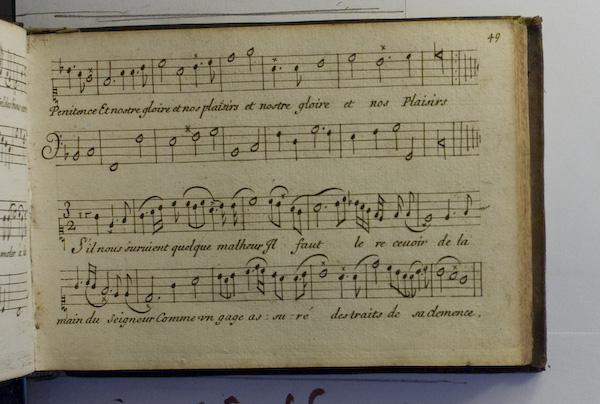 49
Penitence Et nostre gloire et nos plaisirs et nostre gloire et nos Plaisirs
3
2
S'il nous suruient quelque malheur Il faut le re ceuoir de la
main du Seigneur Comme vn gage as : su : ré des traits de sa clemence .